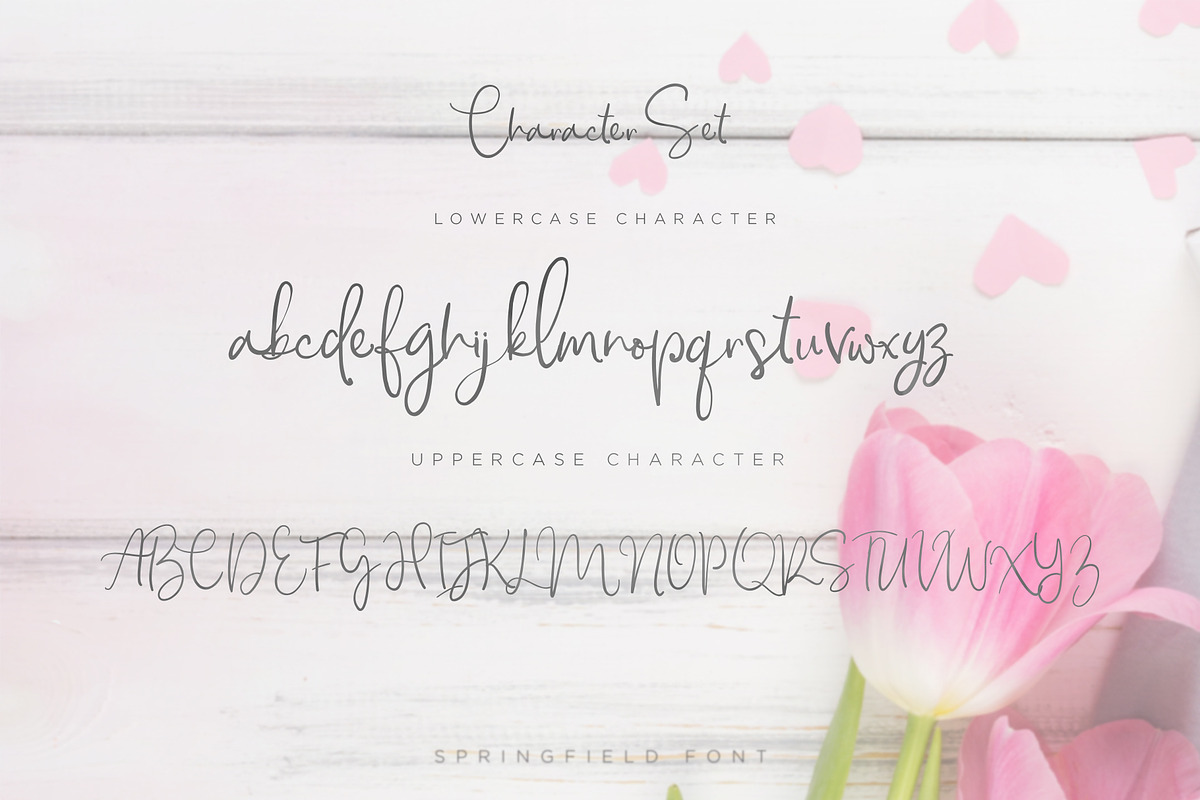 Character Set
LOWERCASE CHARACTER
abcdefghijklmnopqrstuvwxyz
UPPERCASE CHARACTER
ABCDEFGHIJKLMNOPQRSTUVWXYZ
SPRINGFIELD FONT